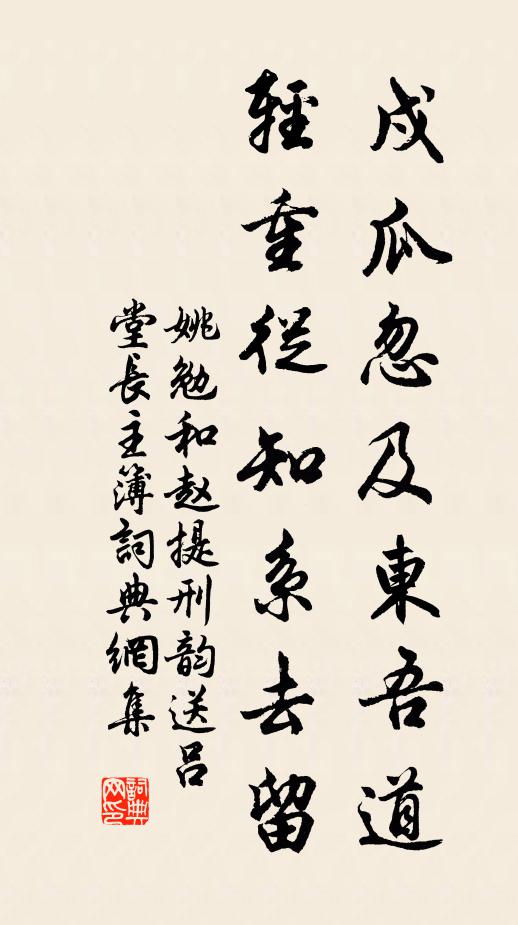 戍瓜忽及東吾道
輕重從知系去留
姚勉和赵提刑韵送吕
堂長主簿詞典網集
詞典网印